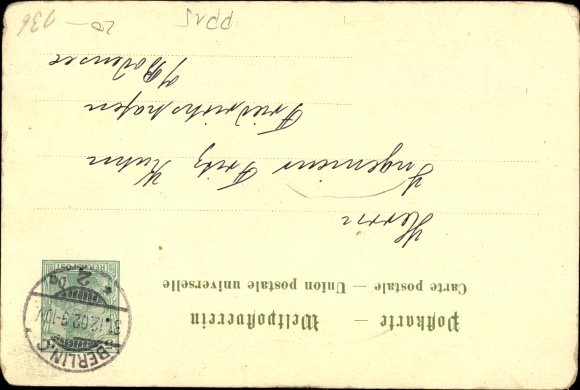 Postkarte — Weltpostverein
Carte postale — Union postale universelle
BERLIN C
31.12.02.9-10V.
* 2
REICHSPOST
Herrn
Ingenieur Fritz Kuhn
Friedrichshafen
Bodensee
20 —
936